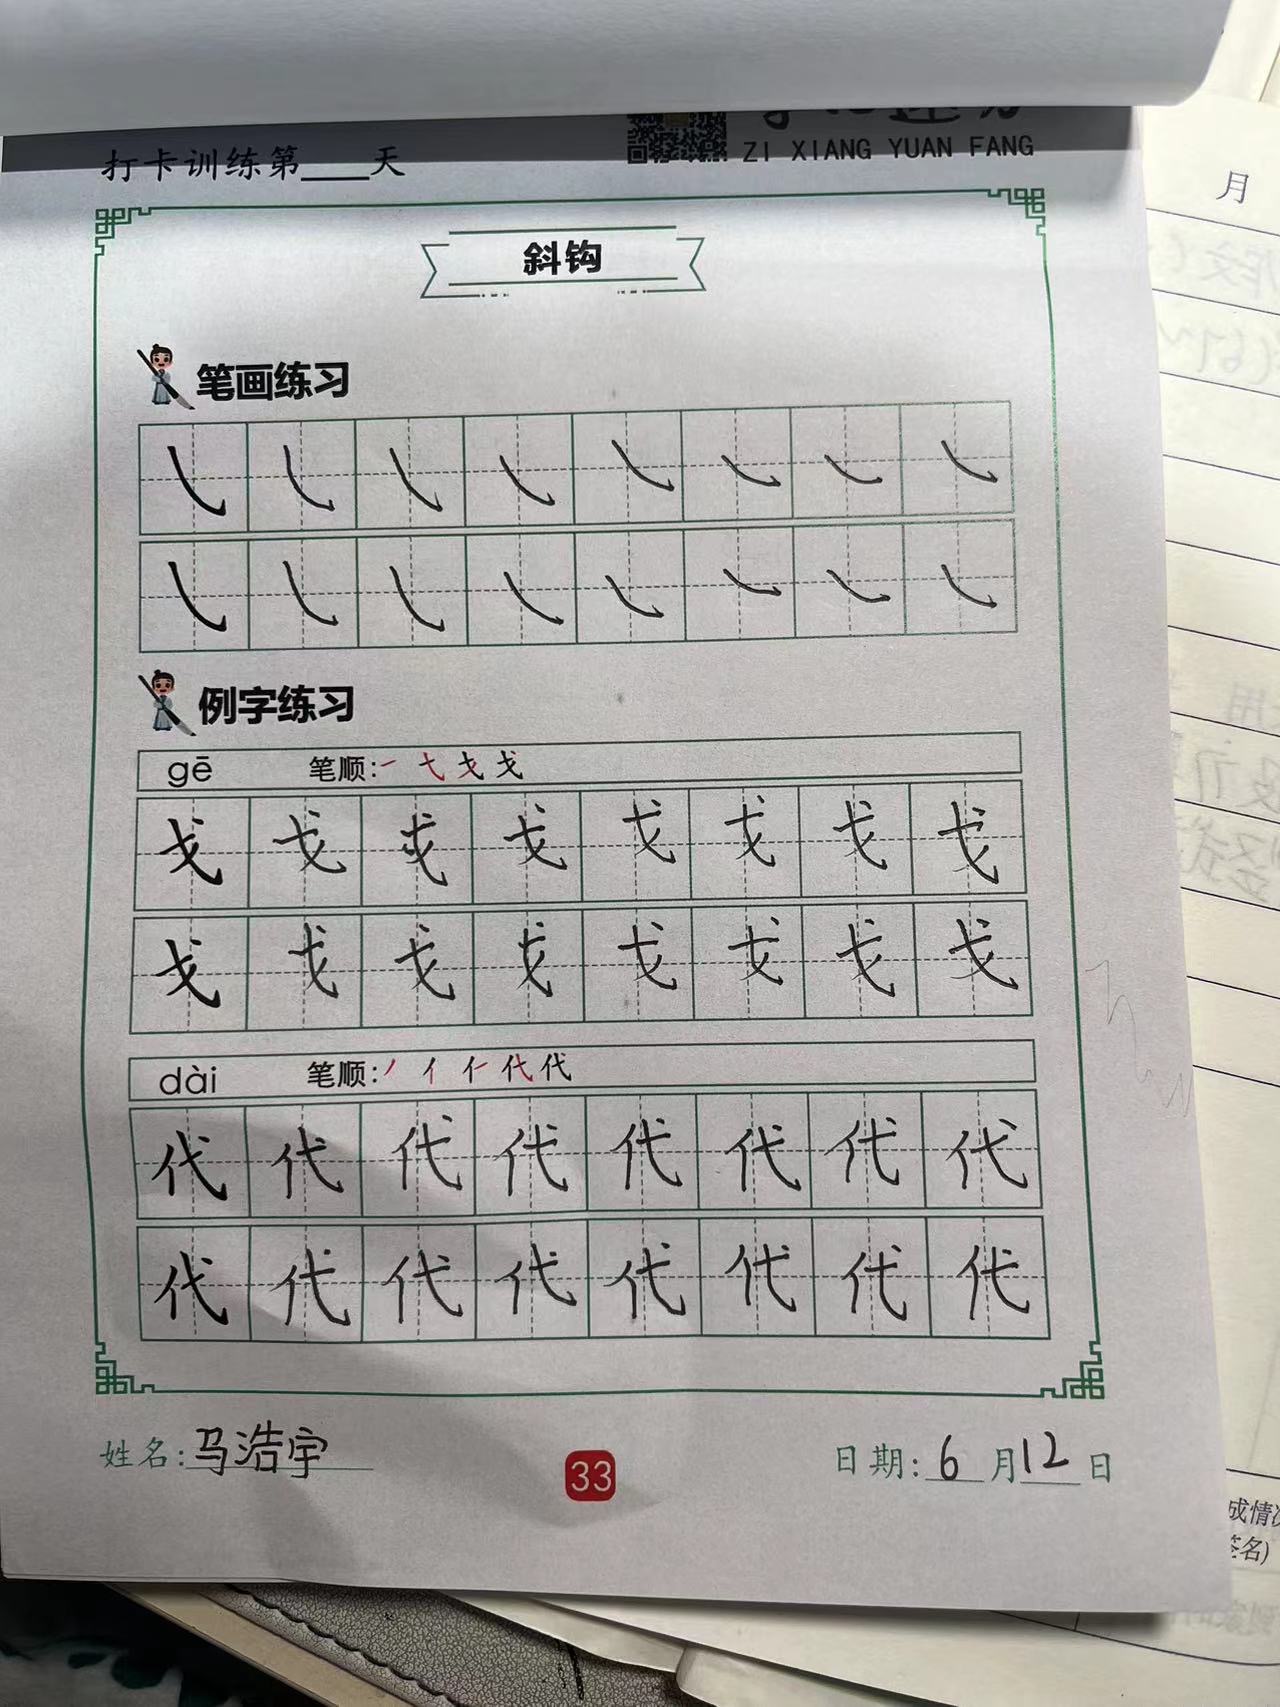 ZI XIANG YUAN FANG
打卡训练第____天
斜钩
笔画练习
例字练习
gē 笔顺:
戈 戈 戈 戈 戈 戈 戈 戈
戈 戈 戈 戈 戈 戈 戈 戈
dài 笔顺: 代
代 代 代 代 代 代 代 代
代 代 代 代 代 代 代 代
姓名:马浩宇
33
日期:6月12日
月
成情
签名)